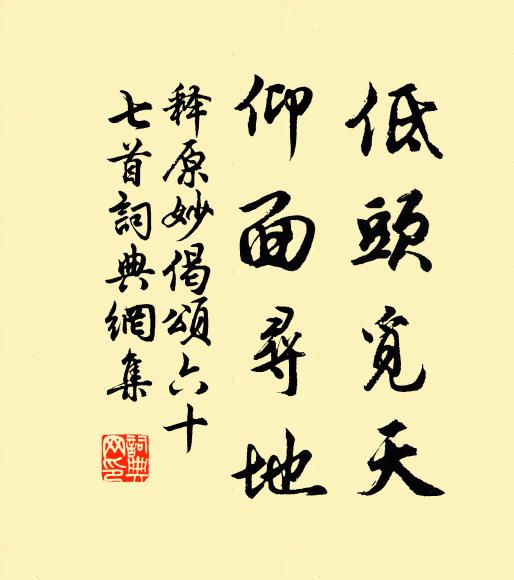 低頭覓天
仰面尋地
释原妙偈頌六十
七首詞典網集
詞典网印